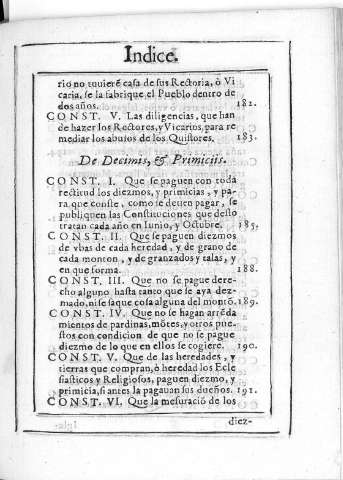 Indice.
rio no tuvierẽ casa de sus Rectoria, ò Vi
caria, se la fabrique el Pueblo dentro de
dos años. 182.
CONST. V. Las diligencias, que han
de hazer los Rectores, y Vicarios, para re
mediar los abusos de los Quistores. 183.
De Decimis, & Primiciis.
CONST. I. Que se paguen con toda
rectitud los diezmos, y primicias, y pa-
ra que conste, como se deuen pagar, se
publiquen las Constituciones que desto
tratan cada año en Iunio, y Octubre. 185.
CONST. II. Que se paguen diezmos
de vbas de cada heredad, y de grano de
cada monton, y de granzados y talas, y
en que forma. 188.
CONST. III. Que no se pague dere-
cho alguno hasta tanto que se aya dez-
mado, ni se saque cosa alguna del montõ. 189.
CONST. IV. Que no se hagan arrẽda
mientos de pardinas, mõtes, y otros pue-
stos con condicion de que no se pague
diezmo de lo que en ellos se cogiere. 190.
CONST. V. Que de las heredades, y
tierras que compran, ò heredad los Ecle
siasticos y Religiosos, paguen diezmo, y
primicia, si antes la pagauan sus dueños. 191.
CONST. VI. Que la mesuració de los
diez-